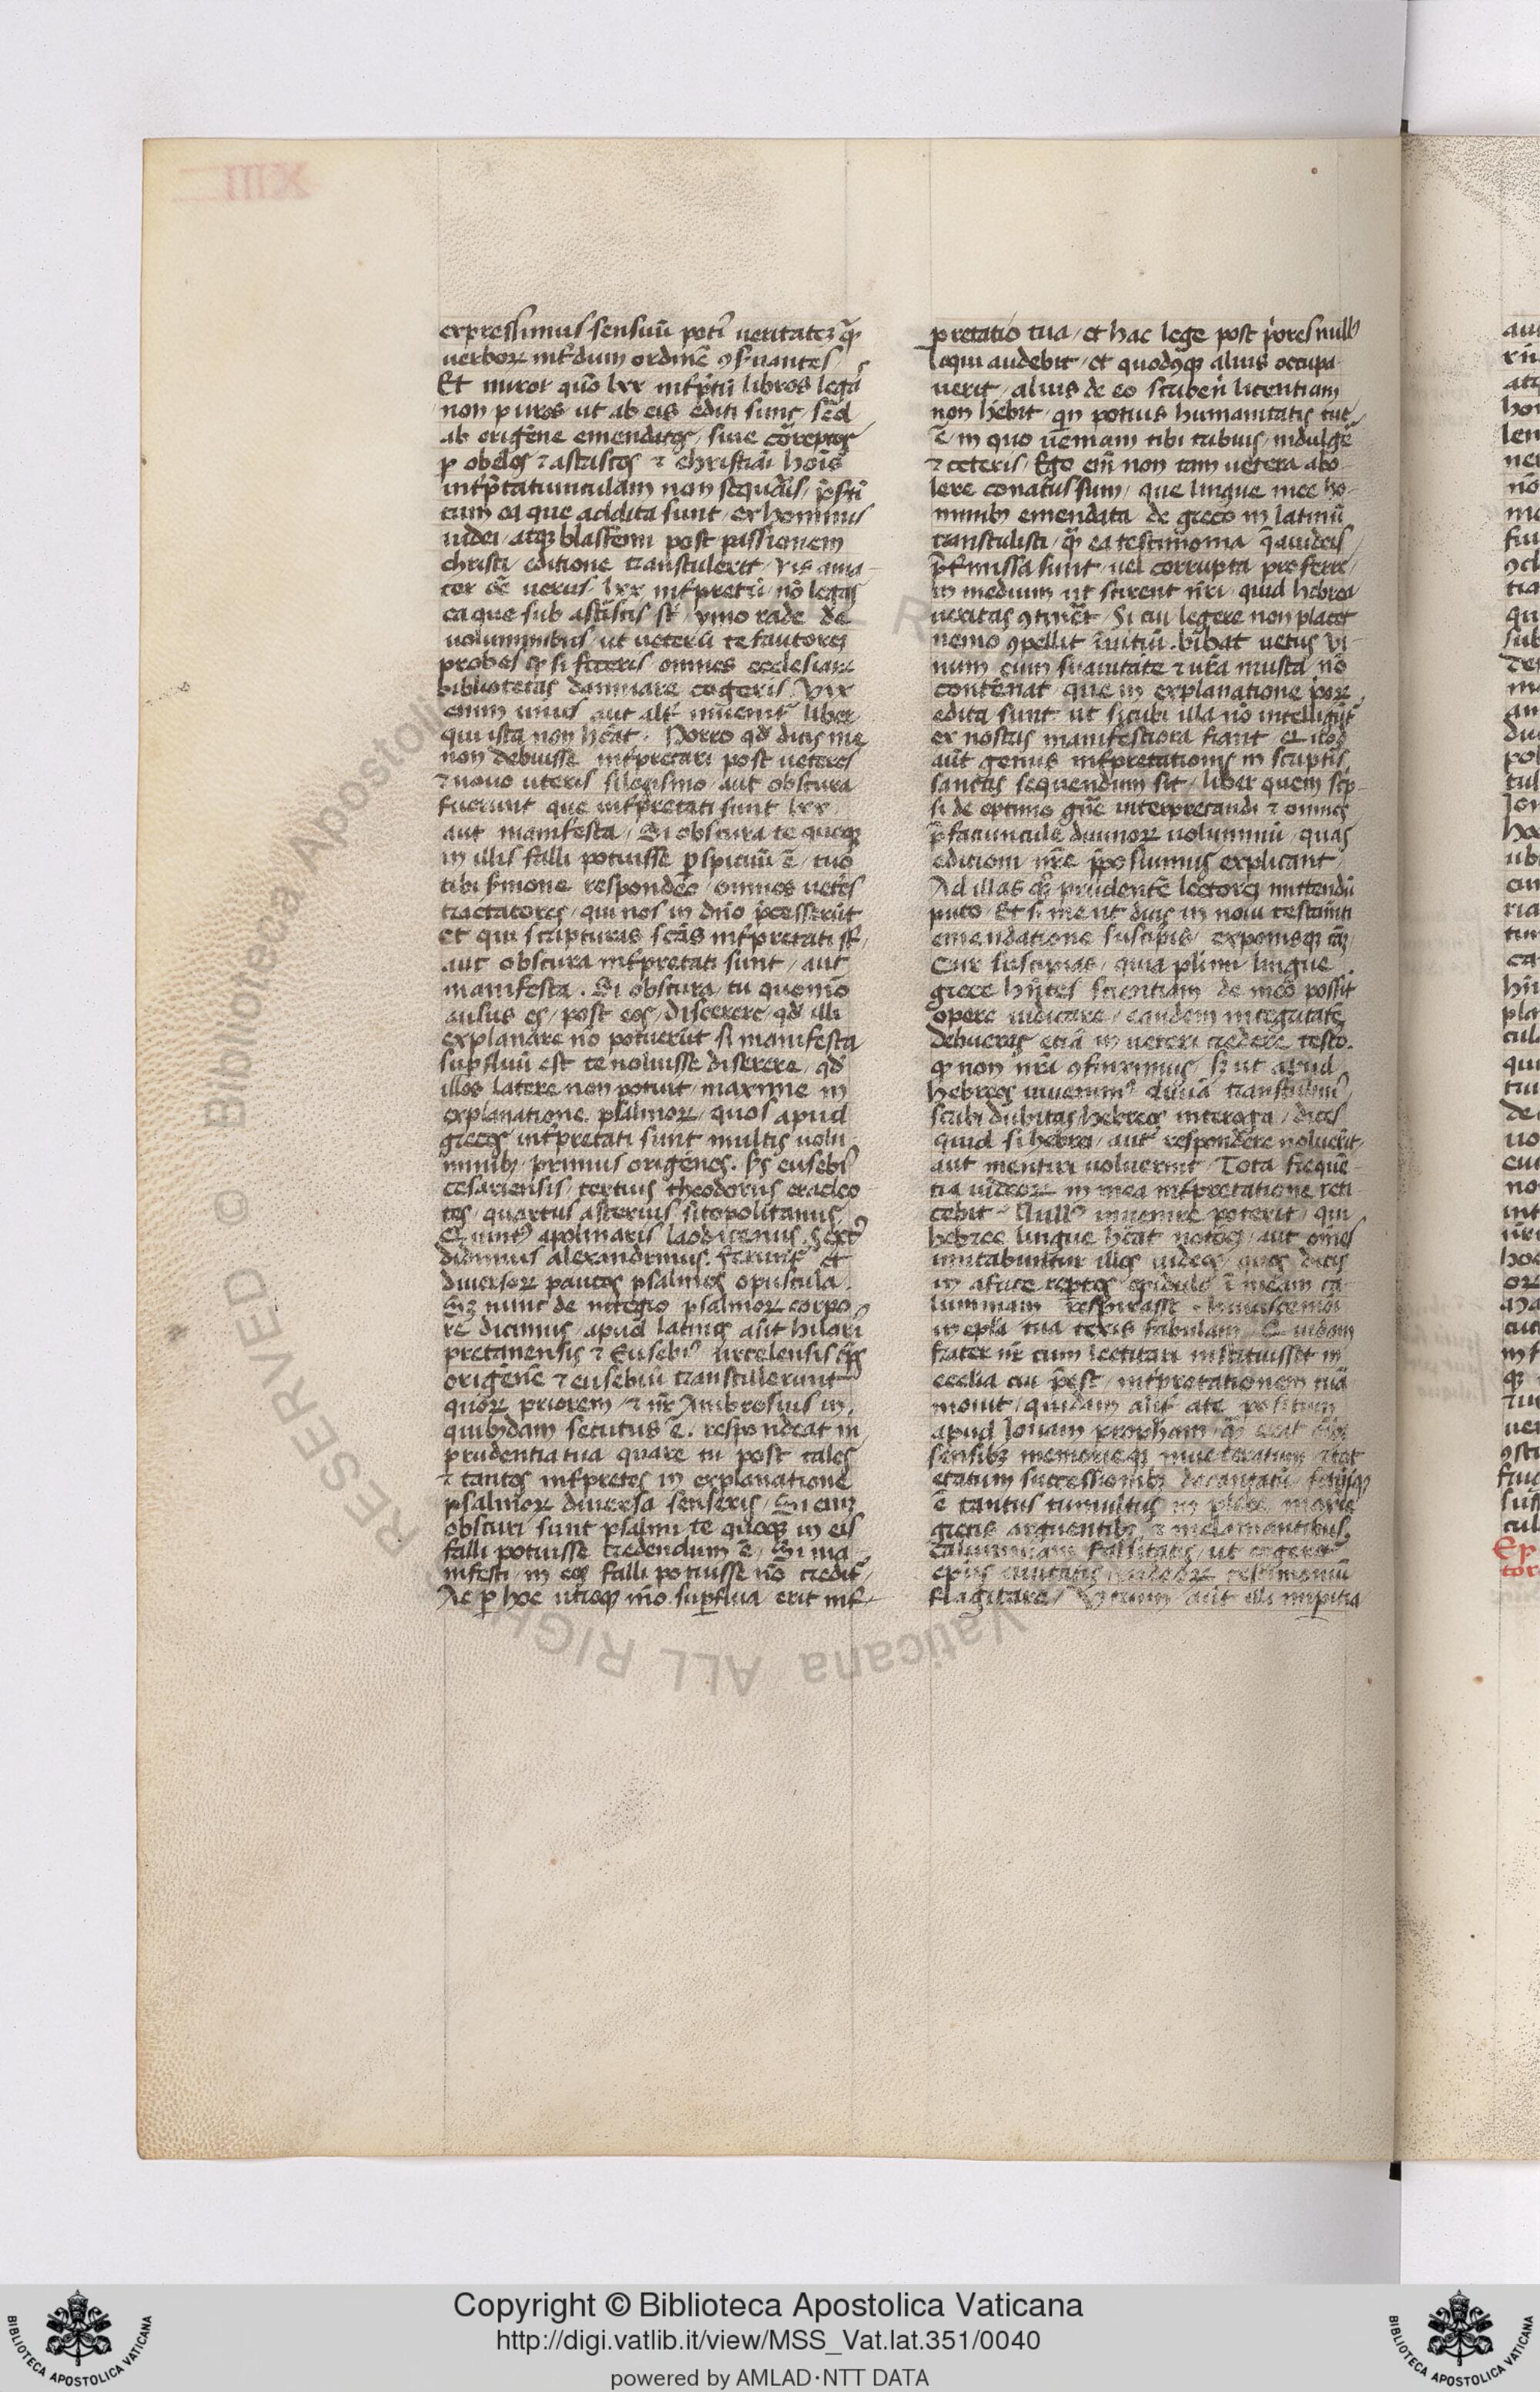 expressimus sensuū poti᷒ ueritatez q̄ꝫ
uerborꝝ int̄dum ordinē ꝯẜuantes
Et miror quō lxx int̄p̄tū libros legas
non puros ut ab eis editi sunt / sed
ab origēne emendatos / siue coreptos
p obelos ⁊ astiscos ⁊ christiāi hois
int̄p̄tatiunculam non sequaris / p̄ẜti
cum ea que addita sunt / ex hominis
iudei / atqꝫ blasfemi post passionem
christi editione transtulerit / vis ama
tor eē uerus lxx int̄pretū / nō legas
ea que sub astiscis st̄ / ymo rade de
uoluminibus / ut ueterū te fautorez
probes qꝫ si feceris omnes ecclesiarꝝ
bibliotecas damnare cogeris / Vix
enim unus aut alt̄ inuenit᷒ liber
qui ista non hēat . Porro qđ dicis me
non debuisse int̄pretari post ueteres
⁊ nouo uteris silogismo / aut obscura
fuerunt que int̄pretati sunt lxx
aut manifesta / Si obscura te quoqꝫ
in illis falli potuisse ꝑspicuū ē / tuo
tibi ẜmone respondeo / omnes ueteres
tractatores / qui nos in dn̄o p̄cesserūt
et qui scripturas scās int̄pretati st̄ /
aut obscura int̄pretati sunt / aut
manifesta . Si obscura / tu quomō
ausus es / post eos / discerere / qđ illi
explanare nō potuerūt si manifesta
suꝑfluū est te uoluisse diserere / qđ
illos latere non potuit / maxime in
explanatione psalmorꝝ / quos apud
grecos int̄pretati sunt multis uolu
minibꝫ / primus origenes . ẜs eusebi᷒
cesariensis / tertius theodorus eracleo
tes / quartus asterius sitopolitanus
Quint᷒ apolinaris laodicenus . Sext᷒
didimus alexandrinus . Feruntr̄ et
diuersorꝝ paucos psalmos opuscula .
Sꝫ nunc de integro psalmorꝝ corpo
re dicimus / apud latinos aūt hilari᷒
pretanensis ⁊ Eusebi᷒ uircelensis ep̄s
origēnē ⁊ eusebiū transtillerunt
quorꝝ priorem / ⁊ nr̄ Ambrosius in
quibꝫdam secutus ē . respondeat in
prudentia tua quare tu post tales
⁊ tantos int̄pretes in explanatione
psalmorꝝ diuersa senseris / Si enī
obscuri sunt psalmi te quoqꝫ in eis
falli potuisse credendum ē / Si ma
nifesti / in eos falli potuisse nō credit᷒ /
Ac ꝑ hoc utroqꝫ mō suꝑflua erit int̄
pretatio tua / et hac lege post p̄ores null᷒
loqui audebit / et quodcūqꝫ alius occupa
uerit / alius de eo scribendi licentiam
non hēbit / qn̄ potius humanitatis tue
ē / in quo ueniam tibi tribuis / indulgē
⁊ ceteris / Ego em̄ non tam uetera abo
lere conatus sum / que lingue mee ho
minibꝫ emendata de greco in latinū
transtulisti / q̄ꝫ ea testimonia q̄ a iudeis
p̄t̄missa sunt / uel corrupta proferre
in medium ut scirent nr̄i / quid hebrea
ueritas ꝯtinēt / Si cui legere non placet
nemo ꝯpellit inuitū . bibat uetus vi
num cum suauitate ⁊ nr̄a musta nō
contēnat / que in explanatione p̄orꝝ
edita sunt ut sicubi illa nō intelligūt᷒
ex nostris manifestiora fiant / Quod
aūt genus int̄pretationis in scriptis
sanctis sequendum sit / liber quem scrip
si de optimo gn̄e interpretandi ⁊ omnes
p̄fatiuncule diuinorꝝ uoluminū / quas
editioni nr̄e p̄posiuimus explicant
Ad illas qꝫ prudentē lectorez mittendū
puto / Et si me ut dicis in noui testam̄ti
emendatione suscipis / exponisqꝫ cāꝫ
Cur suscipias / quia plimi lingue
grece hn̄tes scientiam de meo possīt
opere iudicare / eandem integritatē
debueras / etiā in ueteri credere testo .
qꝫ non nr̄a ꝯfinximus / sꝫ ut apud
hebreos inuenim᷒ diuina transtulim᷒
sicubi dubitas / hebreos interoga / dices
quid si hebrei / aut respondere noluerīt
aut mentiri uoluerint / Tota frequē
tia iudeorꝝ in mea int̄pretatione reti
cebit / Null᷒ inuenire poterit qui
hebree lingue hēat notōez / aut om̄es
imitabuntur illos iudeos / quos dicis
in africe reptos opidulo ī meam ca
lumniam respirasse . huiuscemōi
in epl̄a tua texis fabulam / Quidam
frater nr̄ cum lectitari instituisset in
ecclia cui p̄est / int̄pretationem tuā
mouit / quidam aliť a te positum
apud Ionam prophām / q̄ꝫ erat oīm
sensibꝫ memorieqꝫ inueteratum ⁊ tot
etatum successionibꝫ decantatū factusqꝫ
ē tantus tumultus in plebe maxīe
grecis arguentibꝫ / ⁊ inclamantibus
calumniam falsitatis / ut cogeret᷒
epūs ciuitatis iudeorꝝ testimoniū
flagitare / Utrum aūt illi imperitia
Copyright © Biblioteca Apostolica Vaticana
http://digi.vatlib.it/view/MSS_Vat.lat.351/0040
powered by AMLAD·NTT DATA